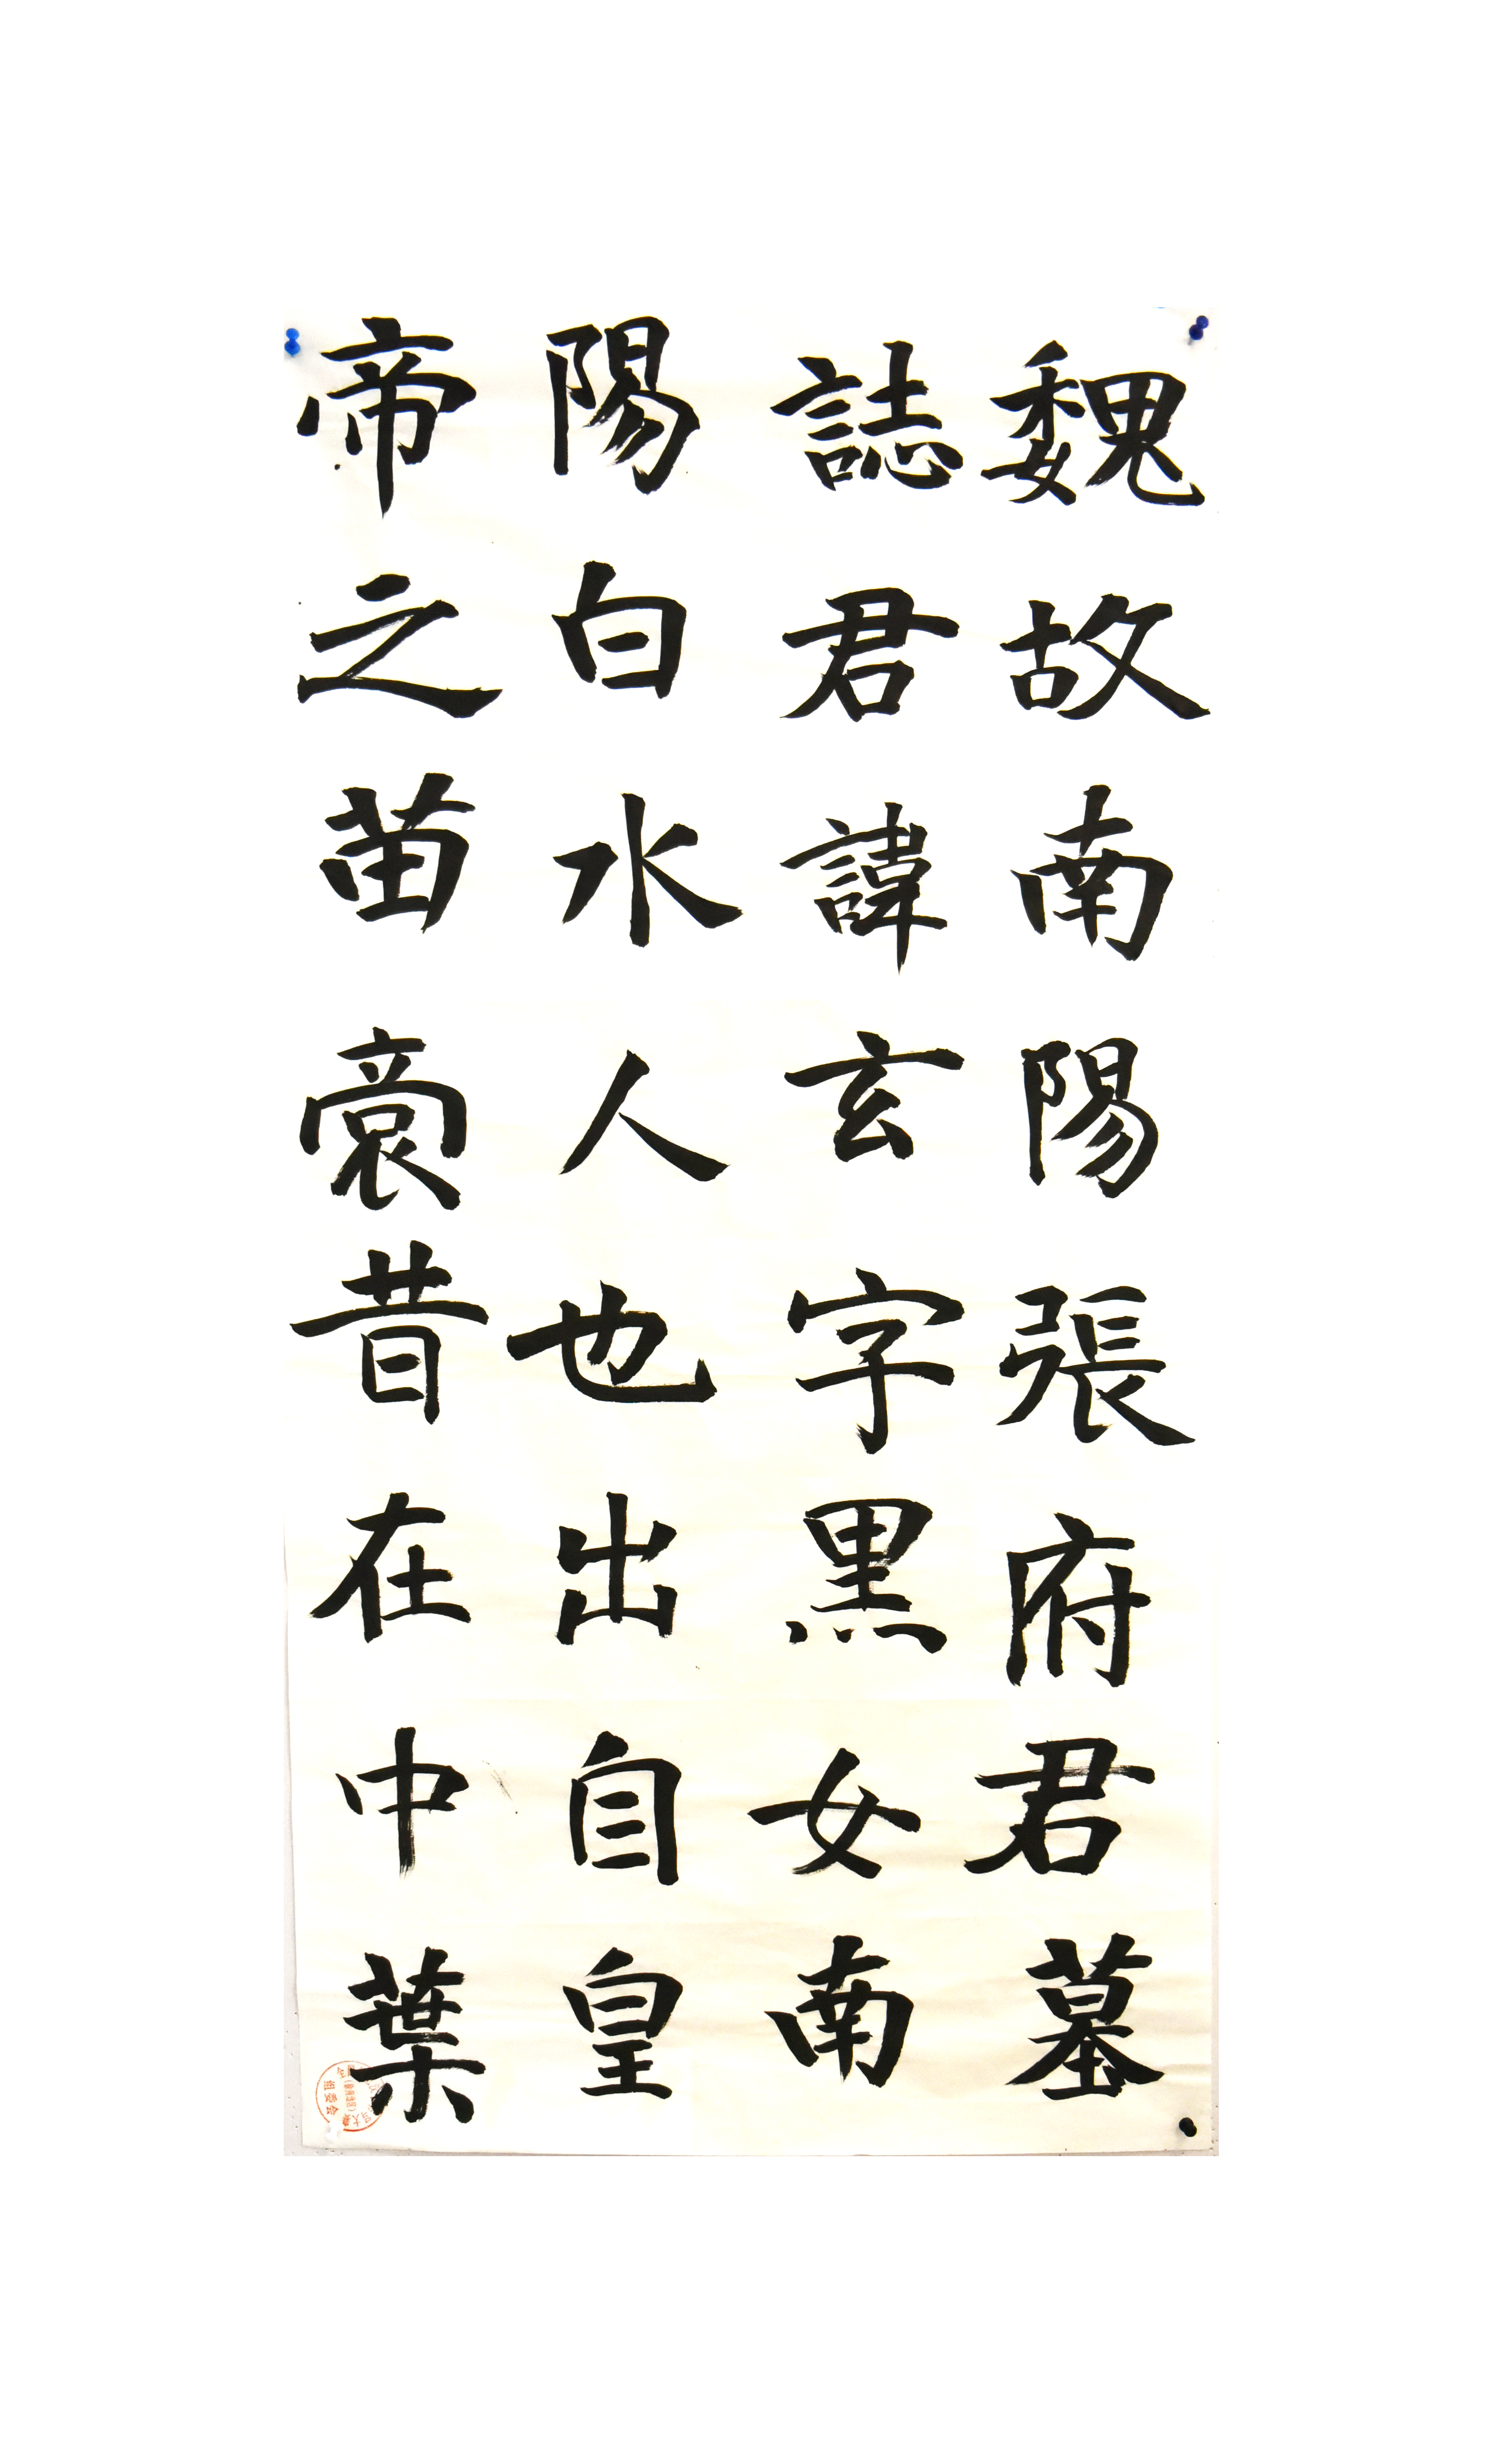 魏故南陽張府君墓
誌君諱玄字黑女南
陽白水人也出自皇
帝之苗裔昔在中葉
組委会